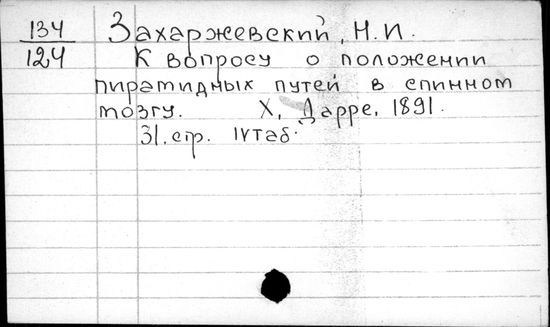 134 Захаржевский, Н. И.
124 К вопросу о положении
пирамидных путей в спинном
мозгу. Х, Дарре, 1891.
31. стр. IV таб.